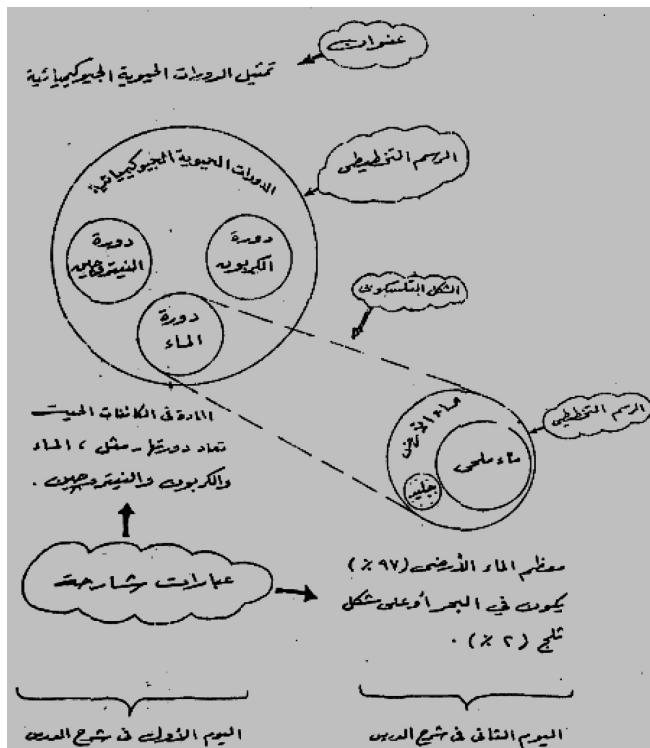 عنوان
تمثيل الدورات الحيوية الجيوكيميائية
الرسم التخطيطي
الدورات الحيوية الجيوكيميائية
دورة
النيتروجين
دورة
الكربون
دورة
الماء
الشكل التلسكوبى
الرسم التخطيطي
ماء الأرض
ماء ملحى
جليد
المادة فى الكائنات الحيت
تعاد دورتها - مثل ، الماء
والكربون والنيتروجين .
عبارات شارحة
معظم الماء الأرضى (٩٧ ٪)
يكون في البحر أو على شكل
ثلج (٢ ٪) .
اليوم الأول فى شرح الدرس
اليوم الثانى فى شرح الدرس